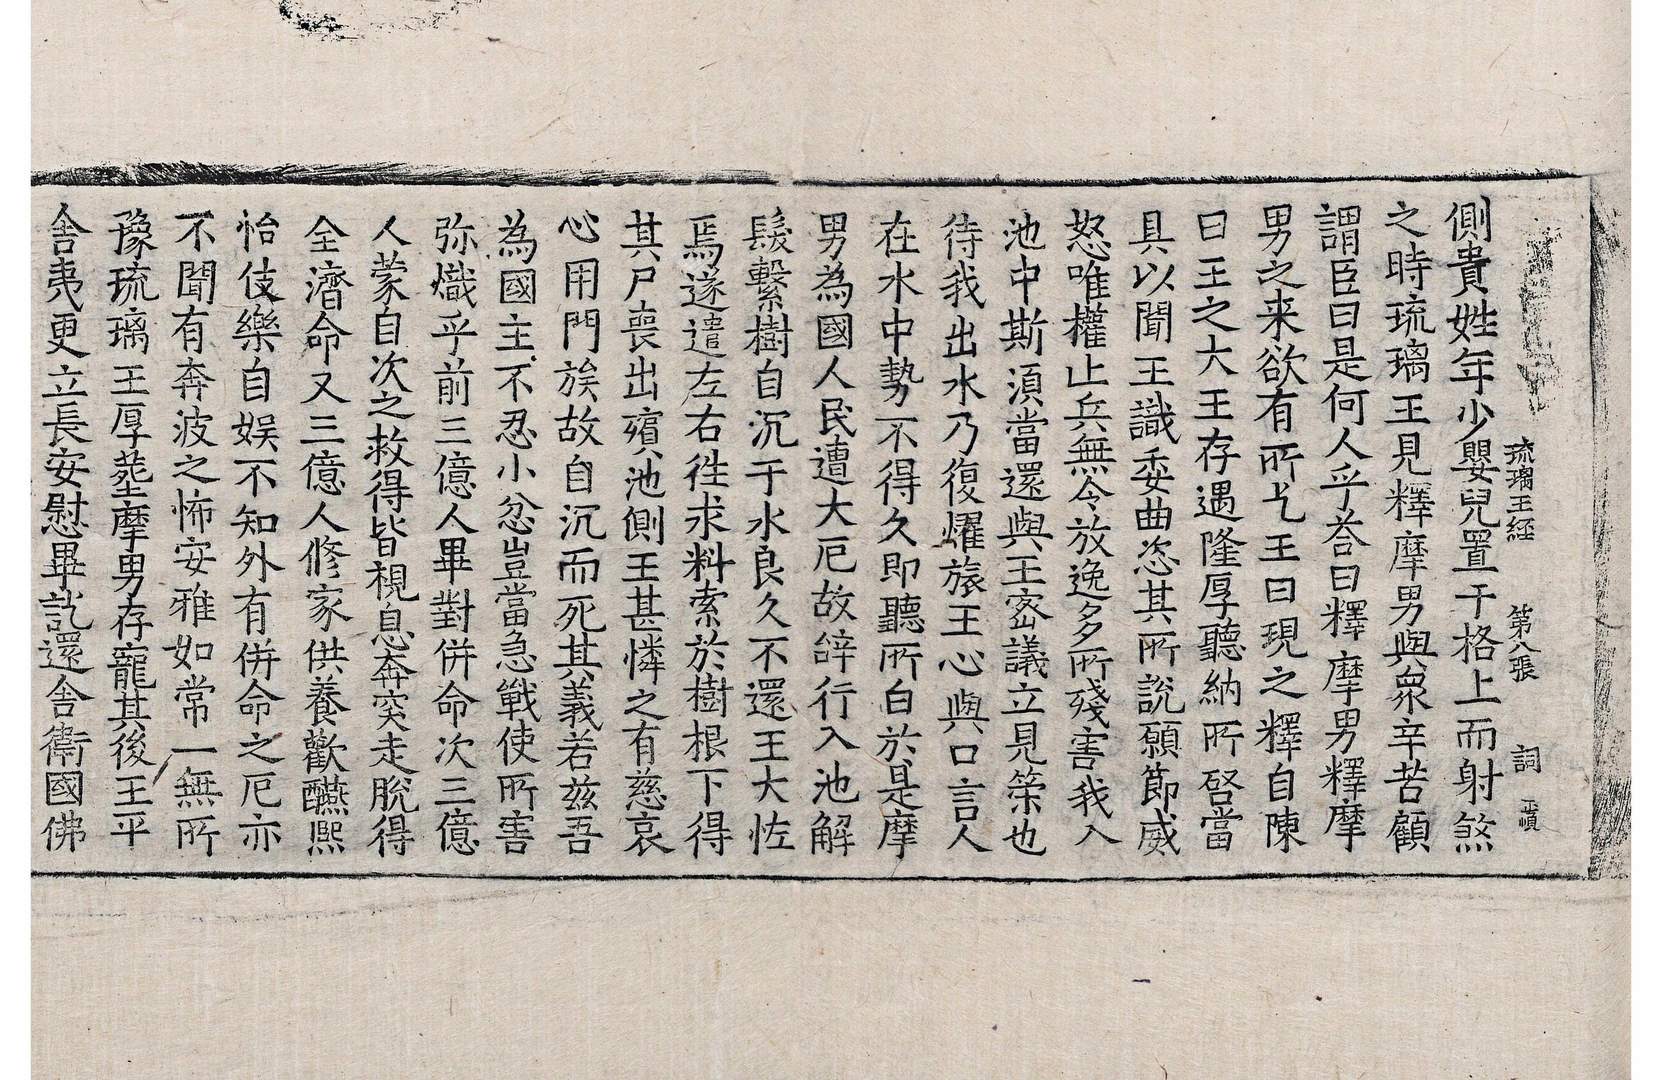 琉璃王経 第八張 詞
側貴姓年少嬰兒置于格上而射煞
之時琉璃王見釋摩男與衆辛苦顧
謂臣曰是何人乎荅曰釋摩男釋摩
男之来欲有所乞王曰現之釋自陳
曰王之大王存遇隆厚聽納所啓當
具以聞王識委曲恣其所說願節威
怒唯權止兵無令放逸多所殘害我入
池中斯湏當還與王宻議立見筞也
待我出水乃復燿旅王心與口言人
在水中勢不得久即聽所白於是摩
男為國人民遭大厄故辝行入池解
髮繫樹自沉于水良久不還王大恠
焉遂遣左右徃求料索於樹根下得
其尸喪出殯池側王甚憐之有慈哀
心用門族故自沉而死其義若茲吾
為國主不忍小忿豈當急戰使所害
弥熾乎前三億人畢對併命次三億
人蒙自次之救得皆視息奔突走脫得
全濟命又三億人修家供養歡醼熙
怡伎樂自娱不知外有併命之厄亦
不聞有奔波之怖安雅如常一無所
豫琉璃王厚塟摩男存寵其後王平
舍夷更立長安慰畢訖還舍衛國佛